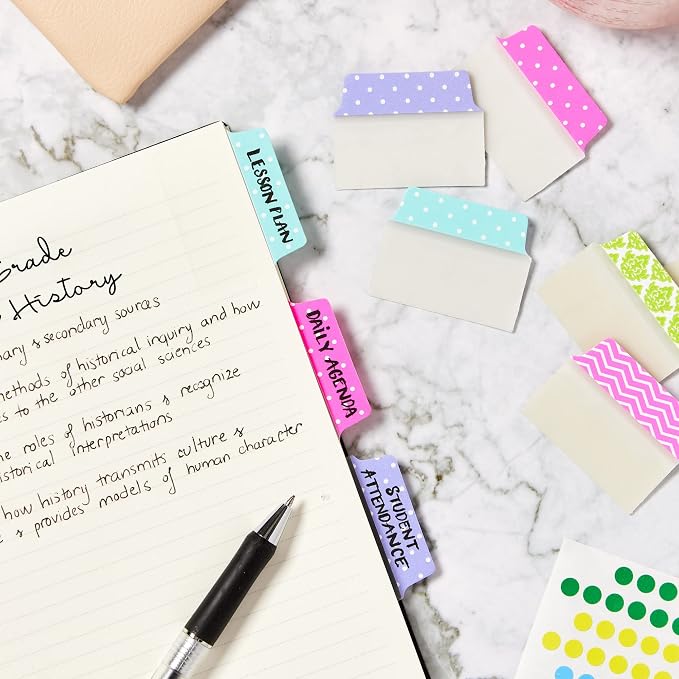 Grade
History
mary & secondary sources
methods of historical inquiry and how
es to the other social sciences
he roles of historians & recognize
istorical interpretations
how history transmits culture &
& provides models of human character
LESSON PLAN
DAILY AGENDA
STUDENT
ATTENDANCE